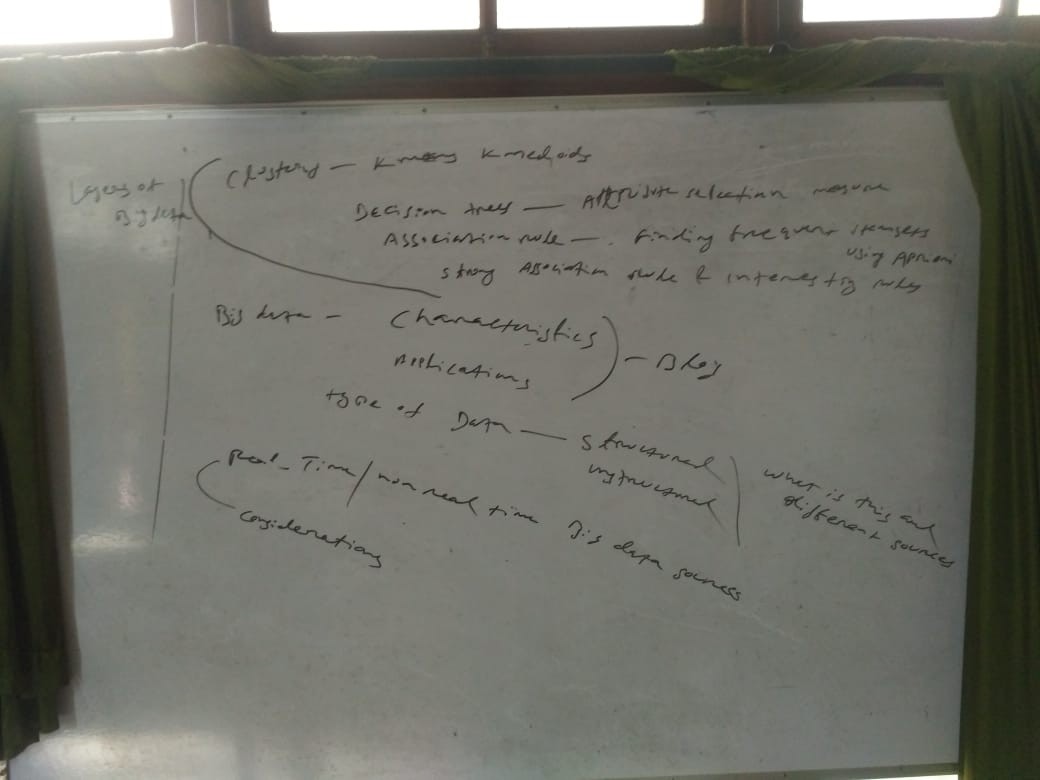 Layers of
Big data
Clustering – K means K medoids
Decision trees – Attribute selection measure
Association rule – . Finding frequent itemsets
using Apriori
strong Association rule & interesting rules
Big data – Characteristics
Applications
type of Data – structured
unstructured
what is this and
different sources
Real-Time/non real time Big data sources
considerations